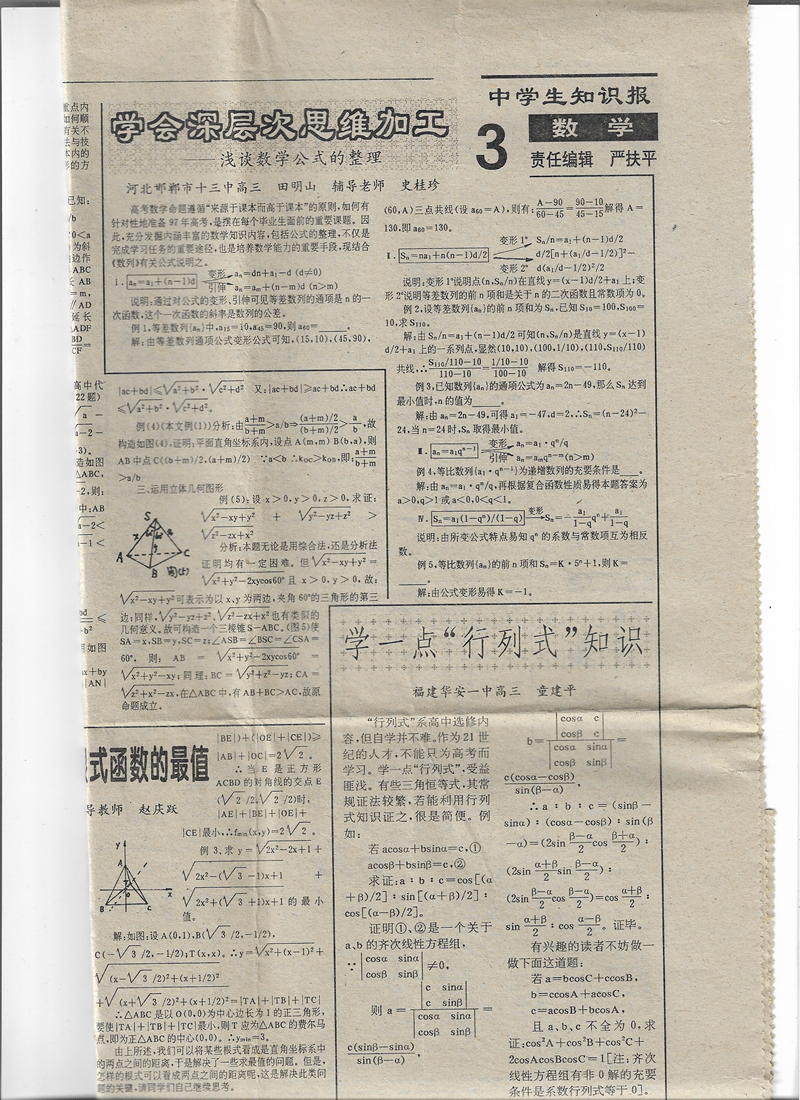 中学生知识报
3
数学
责任编辑 严扶平
学会深层次思维加工
——浅谈数学公式的整理
河北邯郸市十三中高三 田明山 辅导老师 史桂珍
高考数学命题遵循“来源于课本而高于课本”的原则,如何有
针对性地准备97年高考,是摆在每个毕业生面前的重要课题。因
此,充分发掘内涵丰富的数学知识内容,包括公式的整理,不仅是
完成学习任务的重要途径,也是培养数学能力的重要手段,现结合
《数列》有关公式说明之。
Ⅰ. aₙ=a₁+(n-1)d 变形 aₙ=dn+a₁-d (d≠0)
引伸 aₙ=aₘ+(n-m)d (n>m)
说明:通过对公式的变形、引伸可见等差数列的通项是n的一
次函数,这个一次函数的斜率是数列的公差。
例1,等差数列{aₙ}中,a₁₅=10,a₄₅=90,则a₆₀=____。
解:由等差数列通项公式变形公式可知,(15,10),(45,90),
(60,A)三点共线(设a₆₀=A),则有:(A-90)/(60-45)=(90-10)/(45-15)解得A=
130,即a₆₀=130。
Ⅱ. Sₙ=na₁+n(n-1)d/2 变形1° Sₙ/n=a₁+(n-1)d/2
变形2° d/2[n+(a₁/d-1/2)]²-
d(a₁/d-1/2)²/2
说明:变形1°说明点(n,Sₙ/n)在直线y=(x-1)d/2+a₁上;变
形2°说明等差数列的前n项和是关于n的二次函数且常数项为0。
例2,设等差数列{aₙ}的前n项和为Sₙ,已知S₁₀=100,S₁₀₀=
10,求S₁₁₀。
解:由Sₙ/n=a₁+(n-1)d/2可知(n,Sₙ/n)是直线y=(x-1)
d/2+a₁上的一系列点,显然(10,10),(100,1/10),(110,S₁₁₀/110)
共线,∴(S₁₁₀/110-10)/(110-10)=(1/10-10)/(100-10) 解得S₁₁₀=-110。
例3,已知数列{aₙ}的通项公式为aₙ=2n-49,那么Sₙ达到
最小值时,n的值为____。
解:由aₙ=2n-49,可得a₁=-47,d=2,∴Sₙ=(n-24)²-
24,当n=24时,Sₙ取得最小值。
Ⅲ. aₙ=a₁qⁿ⁻¹ 变形 aₙ=a₁·qⁿ/q
引伸 aₙ=aₘqⁿ⁻ᵐ(n>m)
例4,等比数列{a₁·qⁿ⁻¹}为递增数列的充要条件是____。
解:由aₙ=a₁·qⁿ/q,再根据复合函数性质易得本题答案为
a>0,q>1或a<0,0<q<1。
Ⅳ. Sₙ=a₁(1-qⁿ)/(1-q) 变形 Sₙ=-a₁/(1-q)qⁿ+a₁/(1-q)
说明:由所变公式特点易知qⁿ的系数与常数项互为相反
数。
例5,等比数列{aₙ}的前n项和Sₙ=K·5ⁿ+1,则K=
____。
解:由公式变形易得K=-1。
|ac+bd|≤√a²+b²·√c²+d² 又:|ac+bd|≥ac+bd∴ac+bd
≤√a²+b²·√c²+d²。
例(4)(本文例(1))分析:由(a+m)/(b+m)>a/b⇒((a+m)/2)/((b+m)/2)>a/b,故
构造如图(4),证明:平面直角坐标系内,设点A(m,m)B(b,a),则
AB中点C((b+m)/2,(a+m)/2) ∵a<b ∴k_OC>k_OB,即:(a+m)/(b+m)
>a/b
三、运用立体几何图形
例(5):设x>0,y>0,z>0,求证:
√x²-xy+y² + √y²-yz+z² >
√z²-zx+x²
分析:本题无论是用综合法,还是分析法
证明均有一定困难。但√x²-xy+y²=
√x²+y²-2xycos60°且x>0,y>0,故:
√x²-xy+y²可表示为以x、y为两边,夹角60°的三角形的第三
边;同样,√y²-yz+z²、√z²-zx+x²也有类似的
几何意义。故可构造一个三棱锥S-ABC。(图5)使
SA=x,SB=y,SC=z;∠ASB=∠BSC=∠CSA=
60°,则:AB=√x²+y²-2xycos60°=
√x²+y²-xy;同理:BC=√y²+z²-yz;CA=
√z²+x²-zx,在△ABC中,有AB+BC>AC,故原
命题成立。
S
x
A
B
C
图(5)
式函数的最值
导教师 赵庆跃
|BE|)+(|OE|+|CE|)≥
|AB|+|OC|=2√2。
∴当E是正方形
ACBD的对角线的交点E
(√2/2,√2/2)时,
|AE|+|BE|+|OE|+
|CE|最小,∴fₘᵢₙ(x,y)=2√2。
例3、求y=√2x²-2x+1+
√2x²-(√3-1)x+1 +
√2x²+(√3+1)x+1的最小
值。
解:如图:设A(0,1),B(√3/2,-1/2),
C(-√3/2,-1/2);T(x,x)。∴y=√x²+(x-1)²+
√(x-√3/2)²+(x+1/2)²
+√(x+√3/2)²+(x+1/2)²=|TA|+|TB|+|TC|
∴△ABC是以O(0,0)为中心边长为1的正三角形,
要使|TA|+|TB|+|TC|最小,则T应为△ABC的费尔马
点,即为正△ABC的中心(0,0)。∴yₘᵢₙ=3。
由上所述,我们可以将某些根式看成是直角坐标系中
的两点之间的距离,于是解决了一些求最值的问题。但是,
怎样的根式可以看成两点之间的距离呢,这是解决此类问
题的关键,请同学们自己继续思考。
学一点“行列式”知识
福建华安一中高三 童建平
“行列式”系高中选修内
容,但自学并不难。作为21世
纪的人才,不能只为高考而
学习。学一点“行列式”,受益
匪浅。有些三角恒等式,其常
规证法较繁,若能利用行列
式知识证之,很是简便。例
如:
若acosα+bsinα=c,①
acosβ+bsinβ=c,②
求证:a∶b∶c=cos[(α
+β)/2]∶sin[(α+β)/2]∶
cos[(α-β)/2]。
证明①、②是一个关于
a、b的齐次线性方程组,
∵|cosα sinα|
|cosβ sinβ|≠0,
则a=
|c sinα|
|c sinβ|
|cosα sinα|
|cosβ sinβ|
=
c(sinβ-sinα)/sin(β-α),
b=
|cosα c|
|cosβ c|
|cosα sinα|
|cosβ sinβ|
=
c(cosα-cosβ)/sin(β-α),
∴a∶b∶c=(sinβ-
sinα)∶(cosα-cosβ)∶sin(β
-α)=(2sin(β-α)/2 cos(β+α)/2)∶
(2sin(α+β)/2 sin(β-α)/2)∶
(2sin(β-α)/2 cos(β-α)/2)=cos(α+β)/2∶
sin(α+β)/2∶cos(α-β)/2。证毕。
有兴趣的读者不妨做一
做下面这道题:
若a=bcosC+ccosB,
b=ccosA+acosC,
c=acosB+bcosA,
且a、b、c不全为0,求
证:cos²A+cos²B+cos²C+
2cosAcosBcosC=1[注:齐次
线性方程组有非0解的充要
条件是系数行列式等于0]。